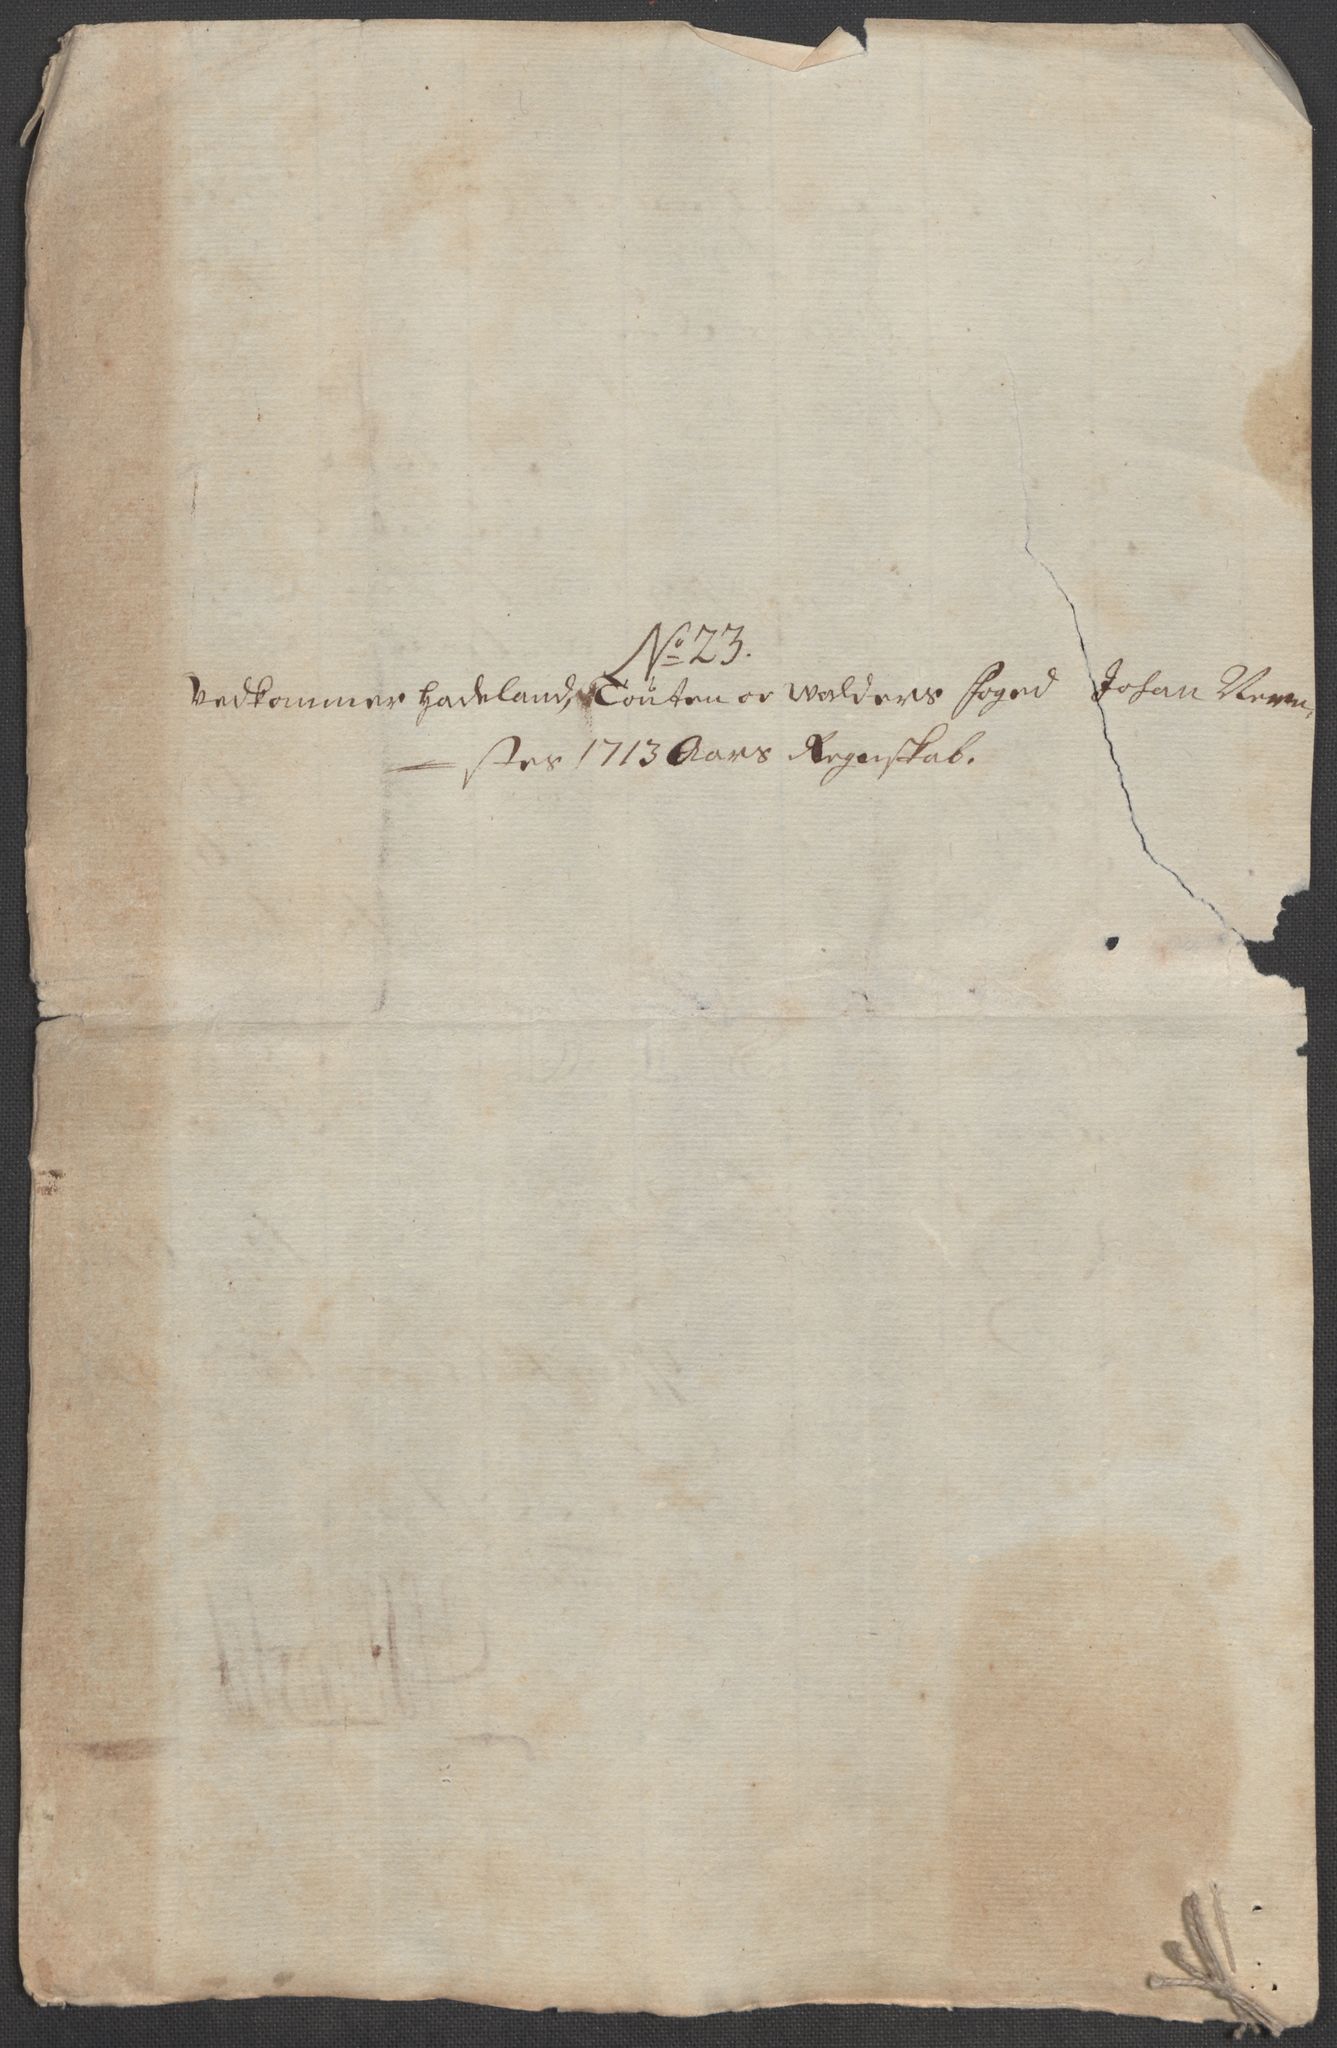 No 23.
Vedkommer Hadeland, Touten oc Walders foged Johan
stes 1713 Aars Regenskab.